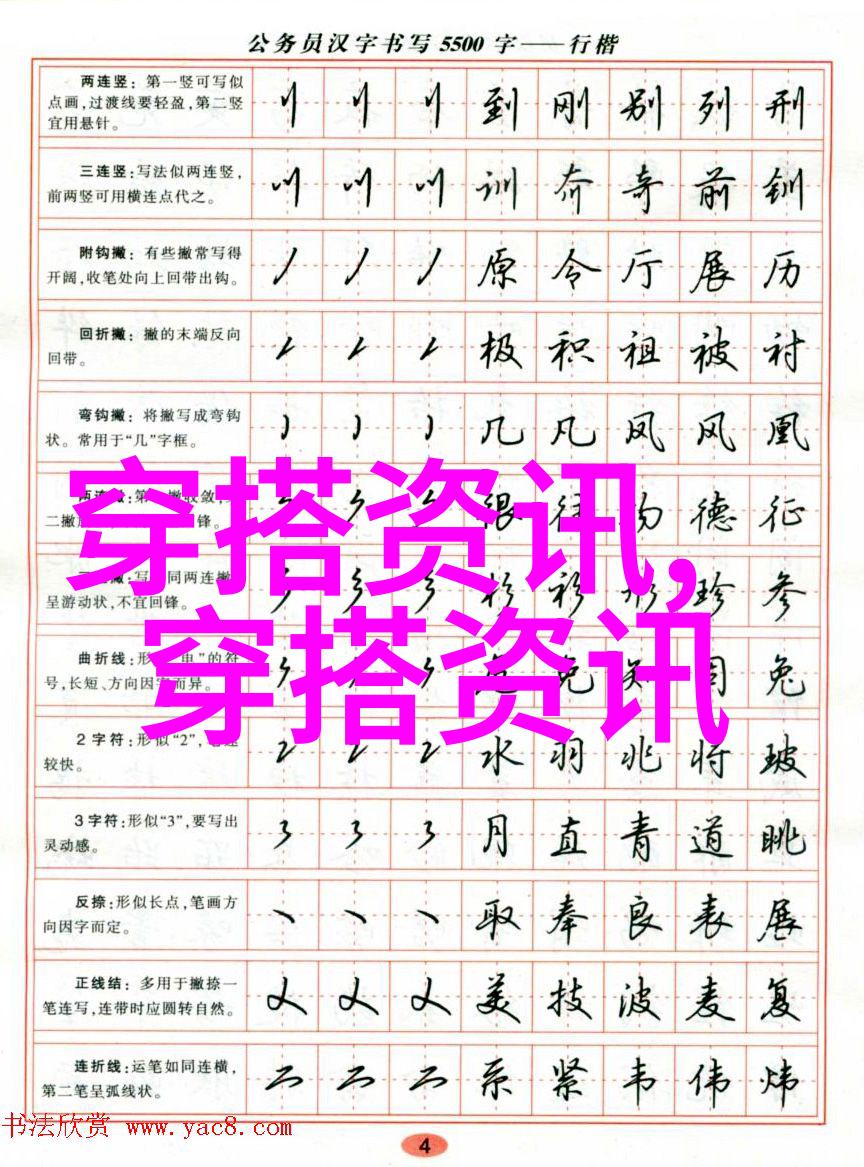 公务员汉字书写5500字——行楷
两连竖：第一竖可写似
点画，过渡线要轻盈，第二竖
宜用悬针。
到 刚 别 列 刑
三连竖：写法似两连竖，
前两竖可用横连点代之。
训 夼 奇 前 钏
附钩撇：有些撇常写得
开阔，收笔处向上回带出钩。
原 令 厅 展 历
回折撇：撇的末端反向
回带。
极 积 祖 被 衬
弯钩撇：将撇写成弯钩
状。常用于“几”字框。
几 凡 凤 风 凰
很 往 德 征
呈游动状，不宜回锋。
衫 形 珍 参
曲折线：形
号，长短、方向因字而异。
兔
2字符：形似“2”，
较快。
水 羽 兆 将 玻
3字符：形似“3”，要写出
灵动感。
月 直 青 道 眺
反捺：形似长点，笔画方
向因字而定。
取 奉 良 表 展
正线结：多用于撇捺一
笔连写，连带时应圆转自然。
美 技 波 麦 复
连折线：运笔如同连横，
第二笔呈弧线状。
系 紧 韦 伟 炜
穿搭资讯，
穿搭资讯
书法欣赏 www.yac8.com
4